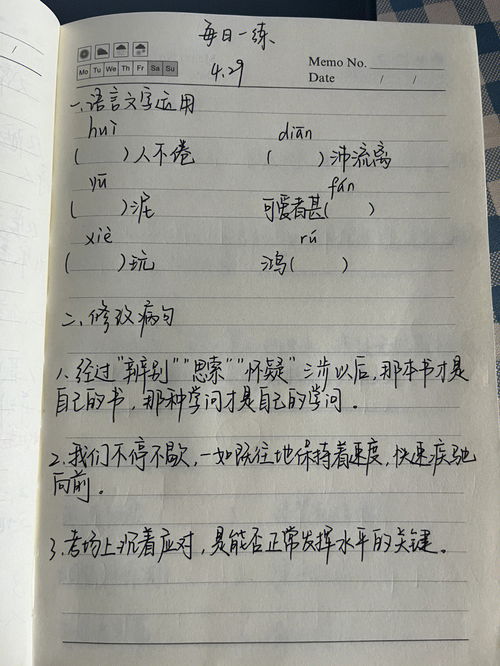 每日一练
Mo Tu We Th Fr Sa Su
4.29
Memo No.
Date / /
一、语言文字运用
huǐ diān
( )人不倦 ( )沛流离
yū fán
( )泥 可爱者甚( )
xiè rú
( )玩 鸿( )
二、修改病句
1、经过"辨别""思索""怀疑"三步以后,那本书才是
自己的书,那种学问才是自己的学问。
2、我们不停不歇,一如既往地保持着速度,快速疾驰
向前。
3、考场上沉着应对,是能否正常发挥水平的关键。